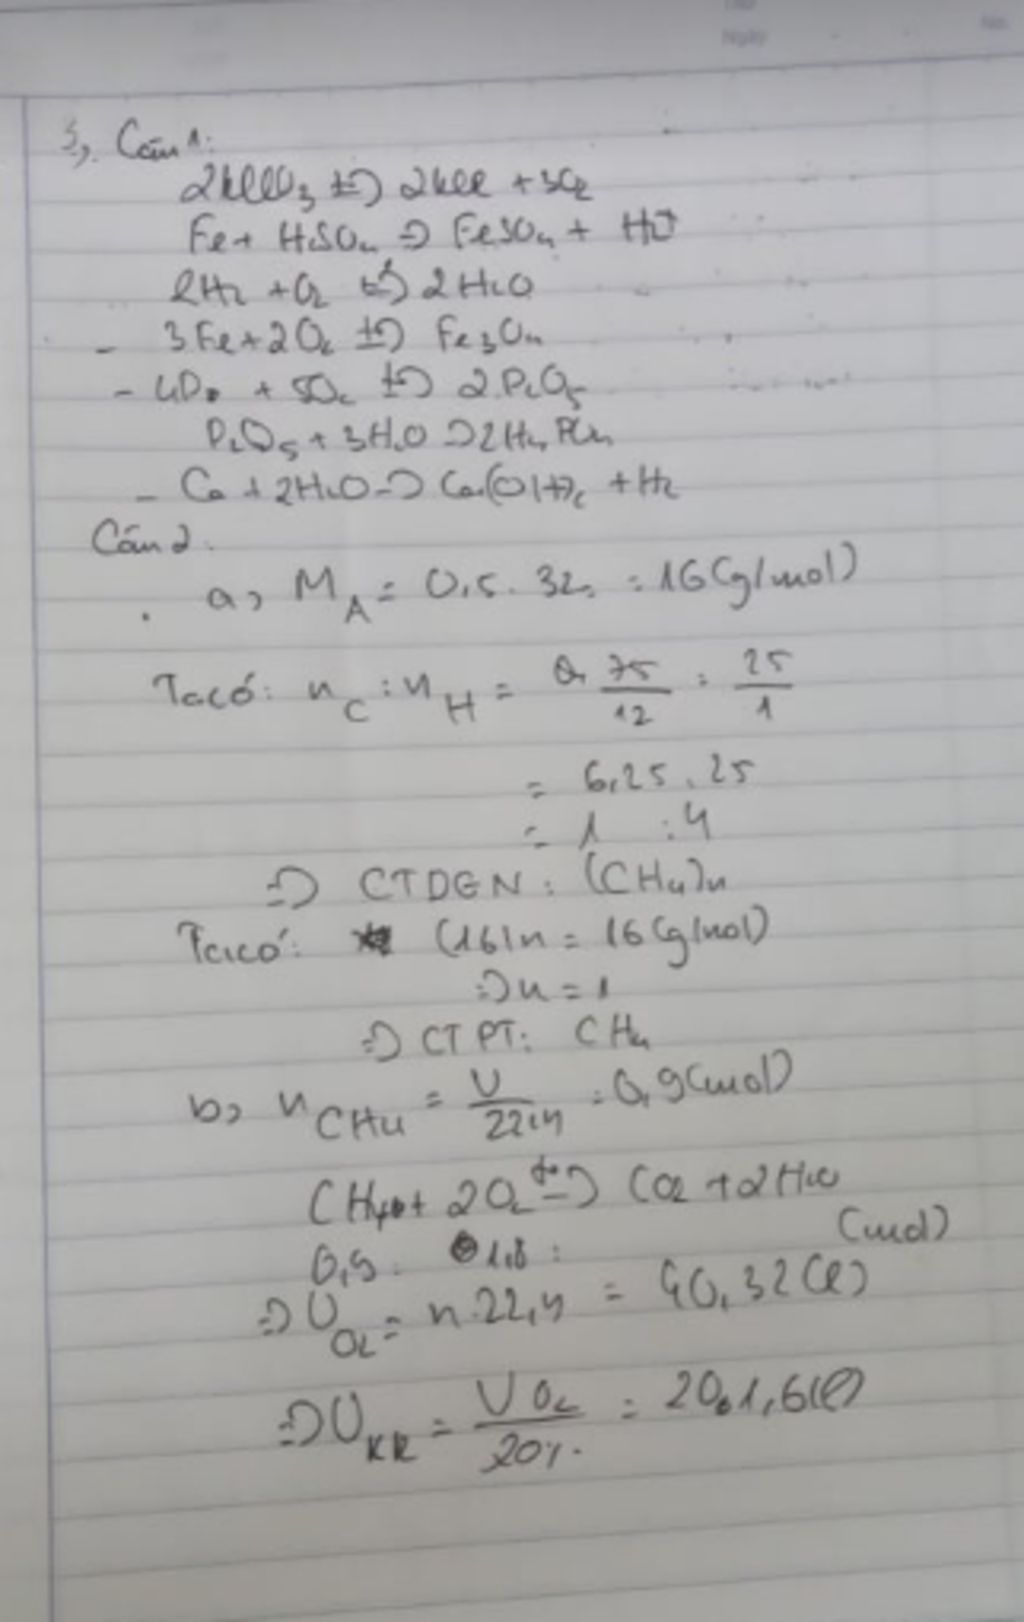 Ngày
No.
3, Câu 1:
2KClO3 t°→ 2KCl + 3O2
Fe + H2SO4 → FeSO4 + H2↑
2H2 + O2 t°→ 2H2O
- 3Fe + 2O2 t°→ Fe3O4
- 4P + 5O2 t°→ 2P2O5
P2O5 + 3H2O → 2H3PO4
- Ca + 2H2O → Ca(OH)2 + H2
Câu 2.
a, MA = 0,5. 32 = 16 (g/mol)
Ta có: nC : nH = 75/12 : 25/1
= 6,25 : 25
= 1 : 4
=> CTDGN: (CH4)n
Ta có: (16)n = 16 (g/mol)
=> n = 1
=> CTPT: CH4
b, nCH4 = V/22,4 = 0,9 (mol)
CH4 + 2O2 t°→ CO2 + 2H2O
0,9 : 1,8 : (mol)
=> VO2 = n.22,4 = 40,32 (l)
=> VKK = VO2/20% = 201,6 (l)